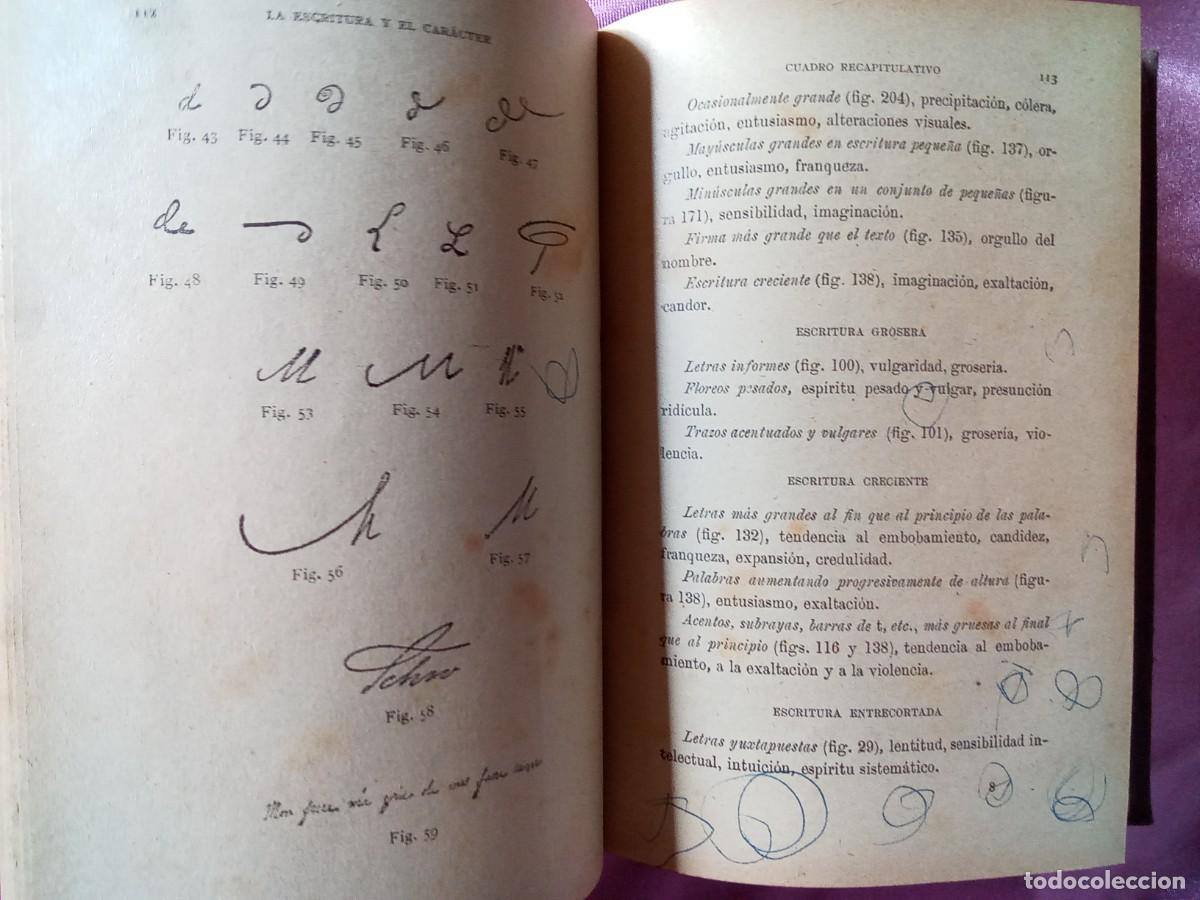 112
LA ESCRITURA Y EL CARÁCTER
d
Fig. 43 Fig. 44 Fig. 45 Fig. 46 Fig. 47
de
Fig. 48 Fig. 49 Fig. 50 Fig. 51 Fig. 52
M M M
Fig. 53 Fig. 54 Fig. 55
M
Fig. 56 Fig. 57
Fig. 58
Mon
Fig. 59
CUADRO RECAPITULATIVO
113
Ocasionalmente grande (fig. 204), precipitación, cólera,
agitación, entusiasmo, alteraciones visuales.
Mayúsculas grandes en escritura pequeña (fig. 137), or-
gullo, entusiasmo, franqueza.
Minúsculas grandes en un conjunto de pequeñas (figu-
ra 171), sensibilidad, imaginación.
Firma más grande que el texto (fig. 135), orgullo del
nombre.
Escritura creciente (fig. 138), imaginación, exaltación,
candor.
ESCRITURA GROSERA
Letras informes (fig. 100), vulgaridad, grosería.
Floreos pesados, espíritu pesado y vulgar, presunción
ridícula.
Trazos acentuados y vulgares (fig. 101), grosería, vio-
lencia.
ESCRITURA CRECIENTE
Letras más grandes al fin que al principio de las pala-
bras (fig. 132), tendencia al embobamiento, candidez,
franqueza, expansión, credulidad.
Palabras aumentando progresivamente de altura (figu-
ra 138), entusiasmo, exaltación.
Acentos, subrayas, barras de t, etc., más gruesas al final
que al principio (figs. 116 y 138), tendencia al emboba-
miento, a la exaltación y a la violencia.
ESCRITURA ENTRECORTADA
Letras yuxtapuestas (fig. 29), lentitud, sensibilidad in-
telectual, intuición, espíritu sistemático.
8
todocoleccion